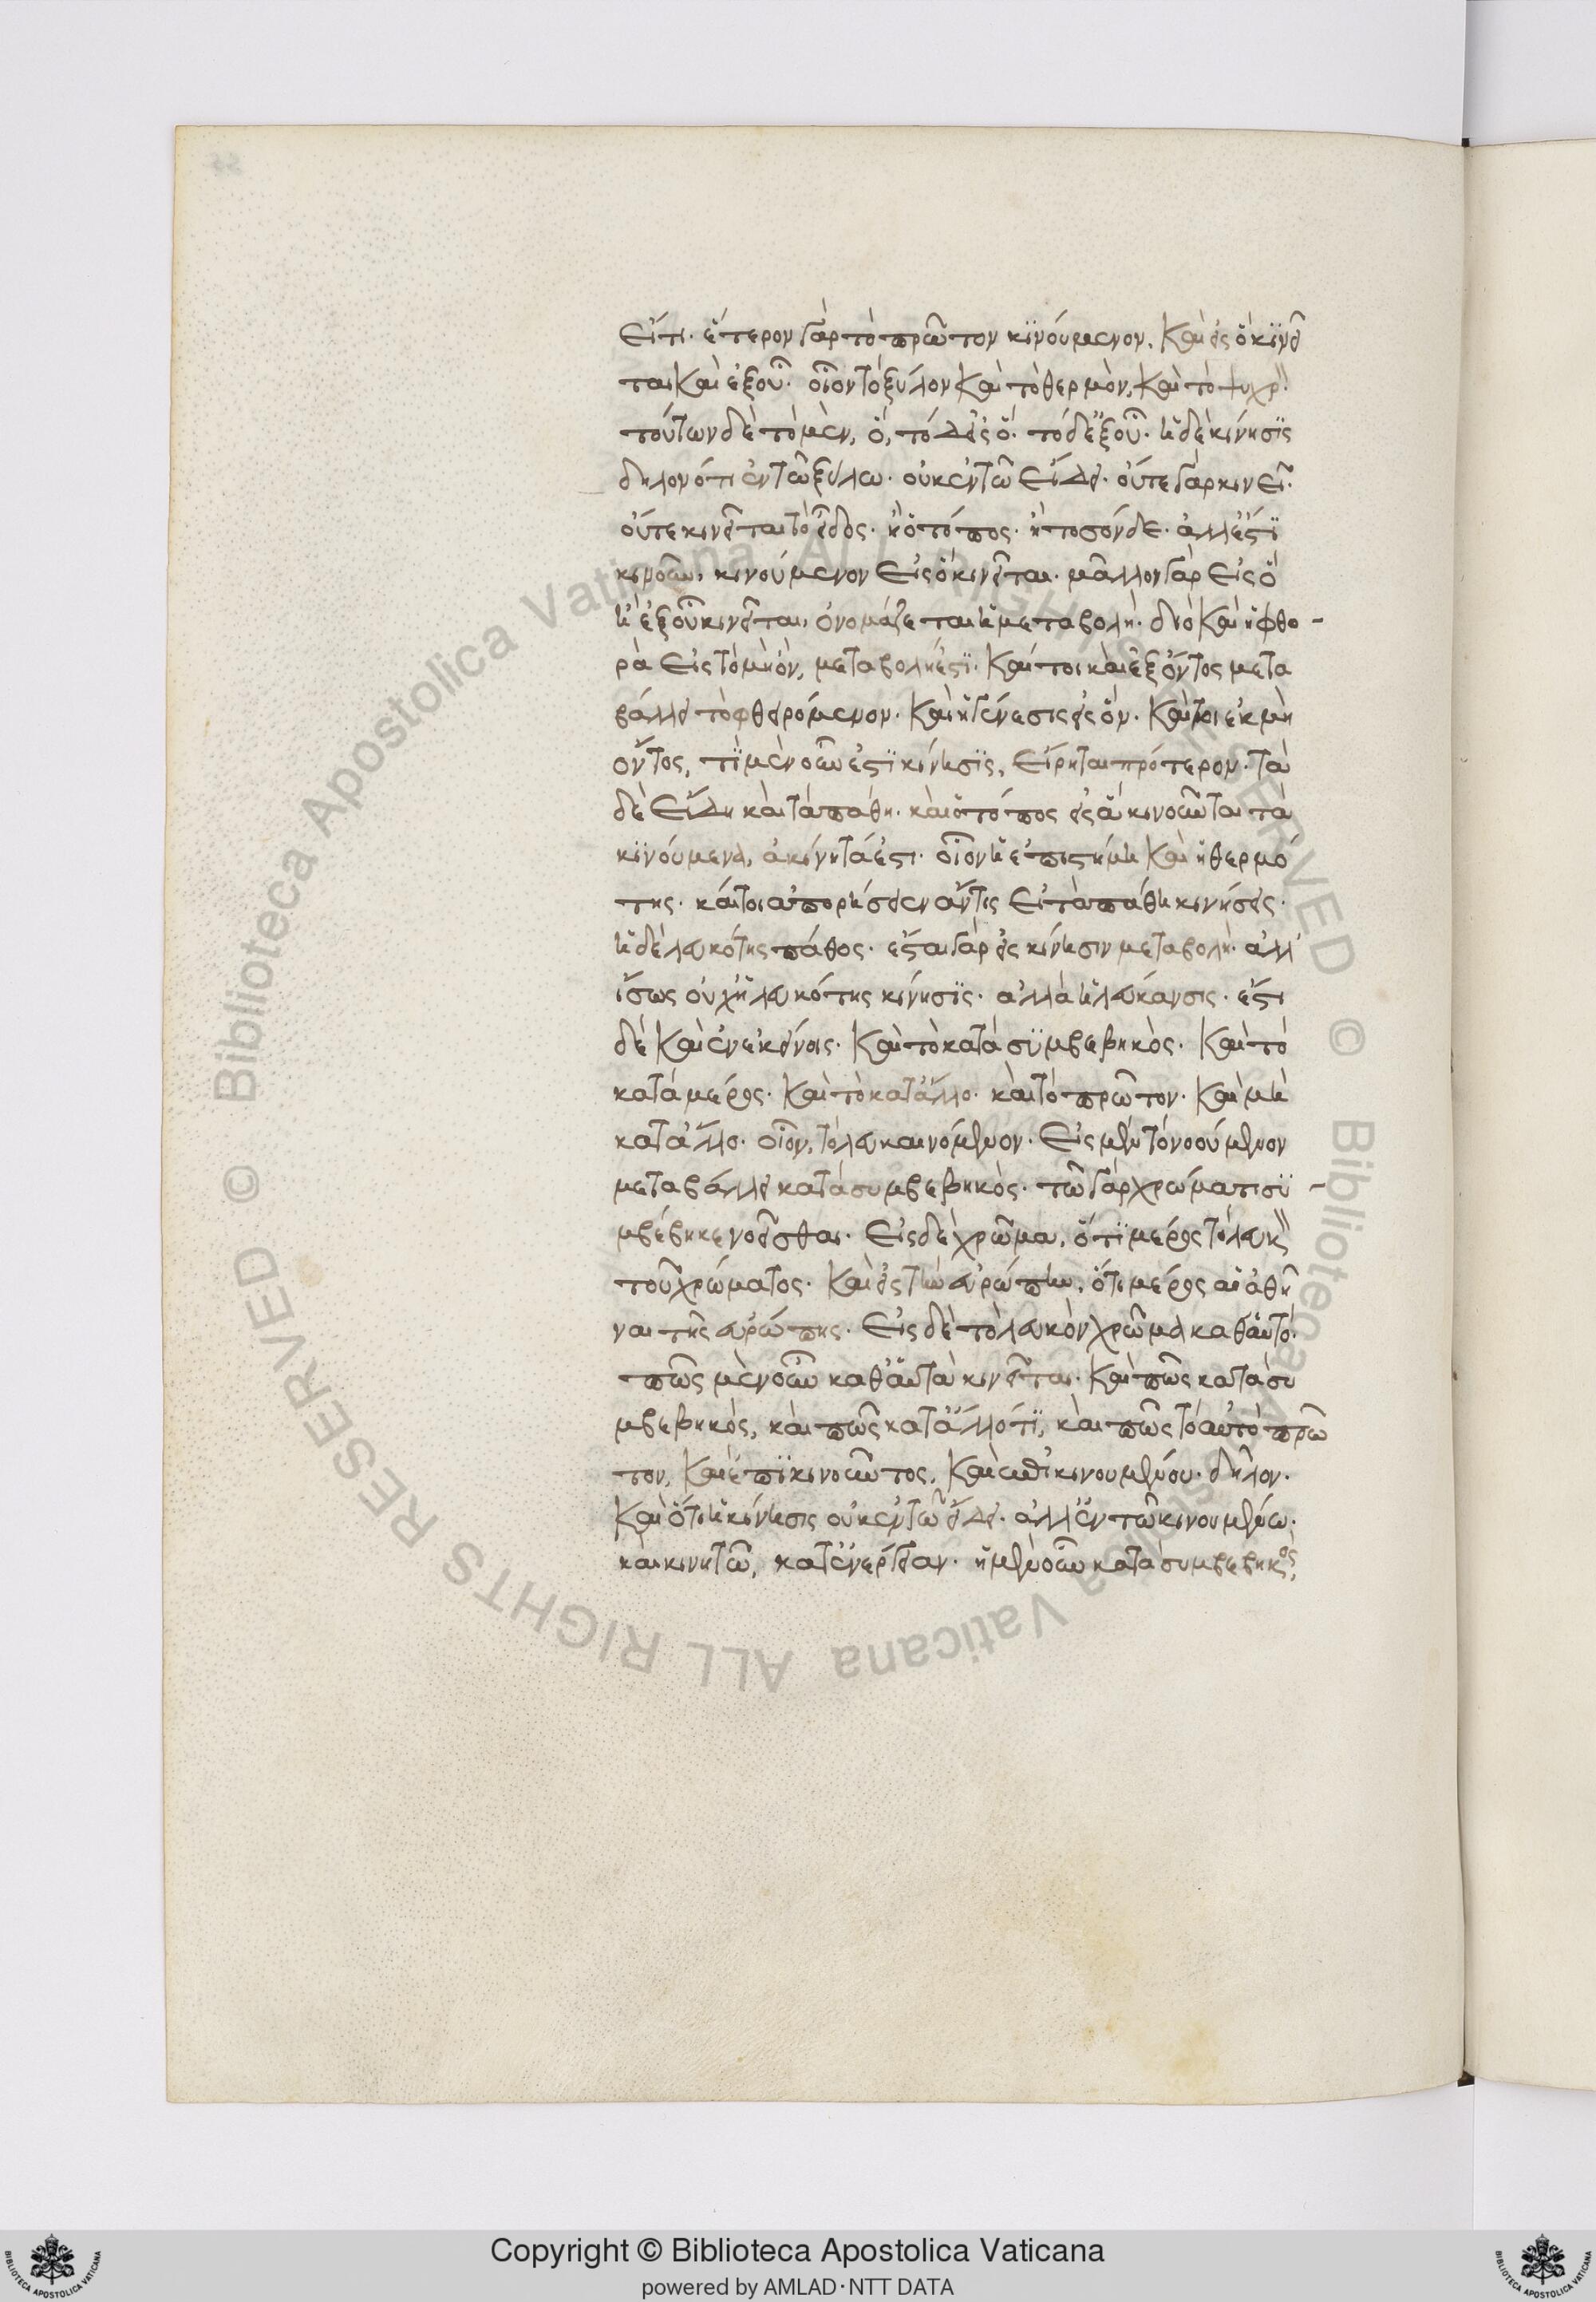 εἴτι· ἕτερον γὰρ τὸ πρῶτον κϊνούμενον, καὶ εἰς ὃ κϊνεῖ
ται καὶ ἐξ οὗ· οἷον τὸ ξύλον καὶ τὸ θερμὸν, καὶ τὸ ψυχρ̀
τούτων δὲ τὸ μὲν, ὃ, τὸ δ' εἰς ὃ· τὸ δ' ἐξ οὗ· ἡ δὲ κίνησϊς
δηλονότι ἐν τῶ ξύλω· οὐκ ἐν τῶ εἴδει· οὔτε γὰρ κινεῖ·
οὔτε κινεῖται τὸ εἶδος· ἢ ὁ τόπος· ἢ τοσόνδε· ἀλλ' ἔστϊ
κινοῦν, κινούμενον εἰς ὃ κινεῖται· μᾶλλον γὰρ εἰς ὃ
ἢ ἐξ οὗ κινεῖται, ὀνομάζεται ἡ μεταβολή· διὸ καὶ ἡ φθο-
ρὰ εἰς τὸ μὴ ὂν, μεταβολή ἐστϊ· καίτοι καὶ ἐξ ὄντος μετα
βάλλει τὸ φθειρόμενον· καὶ ἡ γένεσις εἰς ὂν· καίτοι ἐκ μὴ
ὄντος, τὶ μὲν οὖν ἐστϊ κίνησϊς, εἴρηται πρότερον· τὰ
δὲ εἴδη καὶ τὰ πάθη· καὶ ὁ τόπος εἰς ἃ κινοῦνται τὰ
κϊνούμενα, ἀκίνητά ἐστι· οἷον ἡ ἐπιστήμη καὶ ἡ θερμό
της· καίτοι ἀπορήσειεν ἄν τις εἰ τὰ πάθη κινήσεις·
ἡ δὲ λευκότης πάθος· ἔσται γὰρ εἰς κίνησιν μεταβολὴ· ἀλλ'
ἴσως οὐχ ἡ λευκότης κίνησϊς· ἀλλὰ ἡ λεύκανσις· ἔστι
δὲ καὶ ἐν ἐκείνοις· καὶ τὸ κατὰ συμβεβηκὸς· καὶ τὸ
κατὰ μέρος· καὶ τὸ κατ' ἄλλο· καὶ τὸ πρῶτον· καὶ μὴ
κατ' ἄλλο· οἷον, τὸ λευκαινόμενον· εἰς μὲν τὸ νοούμενον
μεταβάλλει κατὰ συμβεβηκὸς· τῶ γὰρ χρώματι συ-
μβέβηκε νοεῖσθαι· εἰς δὲ χρῶμα, ὅτϊ μέρος τὸ λευκ
τοῦ χρώματος· καὶ εἰς τὴν εὐρώπην, ὅτι μέρος αἱ ἀθῆ
ναι τῆς εὐρώπης· εἰς δὲ τὸ λευκὸν χρῶμα καθ' αὑτό·
πῶς μὲν οὖν καθ' αὑτὰ κινεῖται· καὶ πῶς κατὰ συ
μβεβηκὸς, καὶ πῶς κατ' ἄλλό τϊ, καὶ πῶς τὸ αὐτὸ πρῶ
τον, καὶ ἐπὶ κινοῦντος, καὶ ἐπὶ κινουμένου· δῆλον·
καὶ ὅτι ἡ κίνησις οὐκ ἐν τῶ εἴδει· ἀλλ' ἐν τῶ κινουμένω·
καὶ κινητῶ, κατ' ἐνέργειαν· ἡ μὲν οὖν κατὰ συμβεβηκὸς,
Copyright © Biblioteca Apostolica Vaticana
powered by AMLAD·NTT DATA